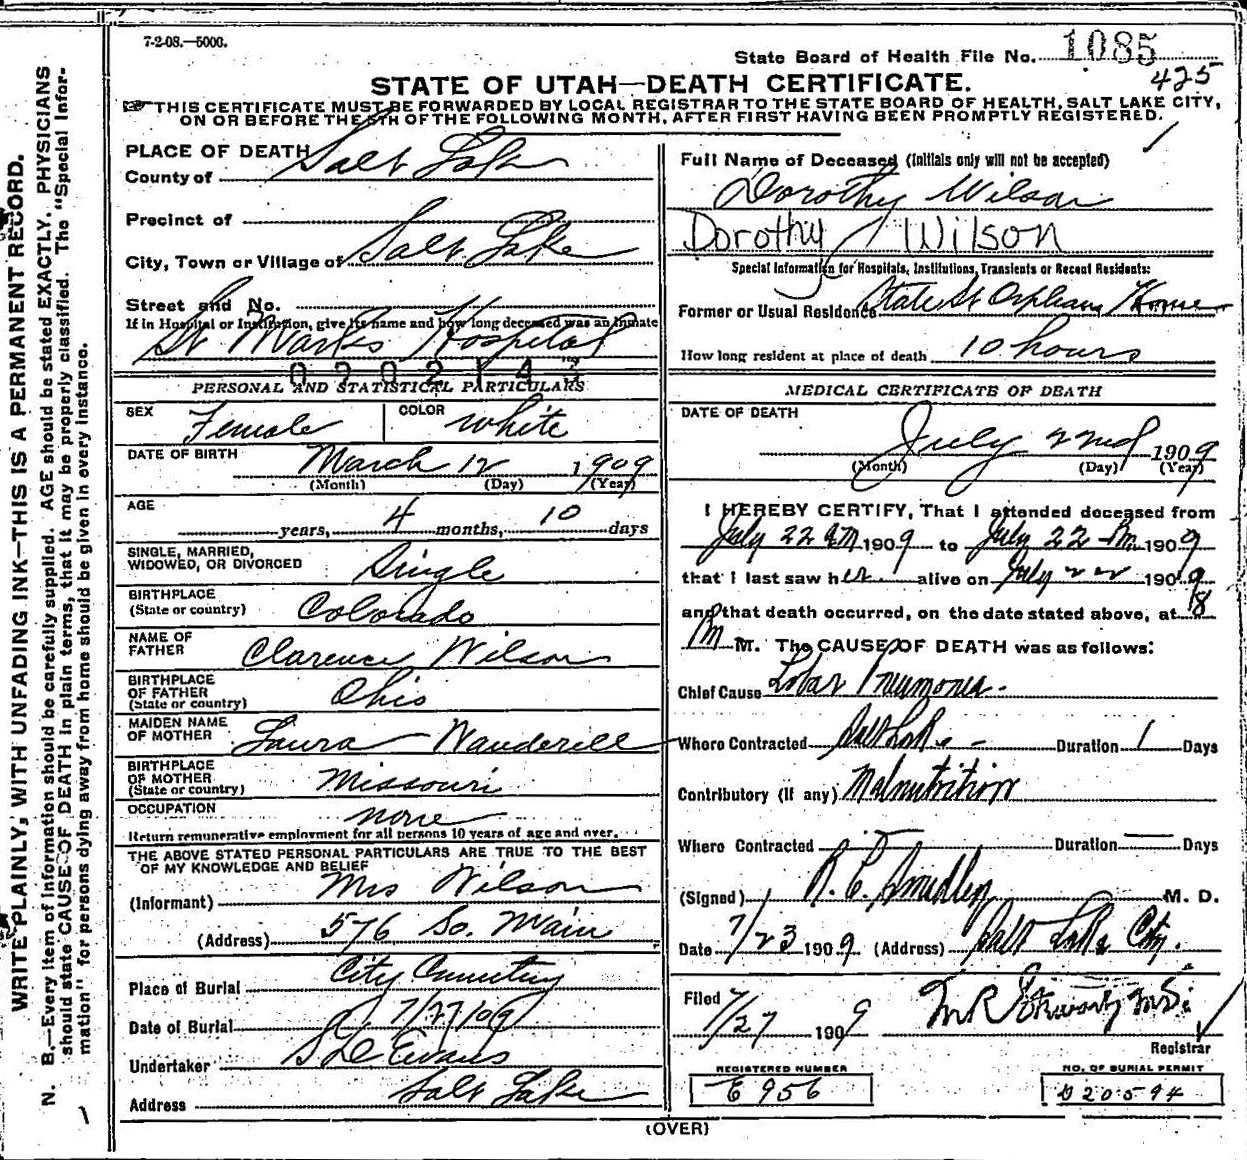 7-2-08.—5000.
State Board of Health File No. 1085
425
STATE OF UTAH—DEATH CERTIFICATE.
THIS CERTIFICATE MUST BE FORWARDED BY LOCAL REGISTRAR TO THE STATE BOARD OF HEALTH, SALT LAKE CITY,
ON OR BEFORE THE 5TH OF THE FOLLOWING MONTH, AFTER FIRST HAVING BEEN PROMPTLY REGISTERED.
WRITE PLAINLY, WITH UNFADING INK—THIS IS A PERMANENT RECORD.
N. B.—Every item of information should be carefully supplied. AGE should be stated EXACTLY. PHYSICIANS
should state CAUSE OF DEATH in plain terms, that it may be properly classified. The "Special Infor-
mation" for persons dying away from home should be given in every instance.
PLACE OF DEATH
County of Salt Lake
Precinct of
City, Town or Village of Salt Lake
Street and No.
If in Hospital or Institution, give its name and how long deceased was an inmate
St Marks Hospital
PERSONAL AND STATISTICAL PARTICULARS
SEX Female COLOR White
DATE OF BIRTH March 12 1909
(Month) (Day) (Year)
AGE years, 4 months, 10 days
SINGLE, MARRIED,
WIDOWED, OR DIVORCED Single
BIRTHPLACE
(State or country) Colorado
NAME OF
FATHER Clarence Wilson
BIRTHPLACE
OF FATHER
(State or country) Ohio
MAIDEN NAME
OF MOTHER Laura Wanderell
BIRTHPLACE
OF MOTHER
(State or country) Missouri
OCCUPATION none
Return remunerative employment for all persons 10 years of age and over.
THE ABOVE STATED PERSONAL PARTICULARS ARE TRUE TO THE BEST
OF MY KNOWLEDGE AND BELIEF
(Informant) Mrs Wilson
(Address) 576 So. Main
Place of Burial City Cemetery
Date of Burial 7/27/09
Undertaker S D Evans
Address Salt Lake
Full Name of Deceased (Initials only will not be accepted)
Dorothy Wilson
Dorothy Wilson
Special Information for Hospitals, Institutions, Transients or Recent Residents:
Former or Usual Residence State St Orphans Home
How long resident at place of death 10 hours
MEDICAL CERTIFICATE OF DEATH
DATE OF DEATH
July 22nd 1909
(Month) (Day) (Year)
I HEREBY CERTIFY, That I attended deceased from
July 22 AM 1909 to July 22 Pm 1909
that I last saw her alive on July 22 1909
and that death occurred, on the date stated above, at 8
Pm M. The CAUSE OF DEATH was as follows:
Chief Cause Lobar Pneumonia.
Where Contracted Salt Lake Duration 1 Days
Contributory (If any) Malnutrition
Where Contracted Duration — Days
(Signed) R. E. Smedley M. D.
Date 7/23 1909 (Address) Salt Lake City.
Filed 7/27 1909
Registrar
REGISTERED NUMBER
E 956
NO. OF BURIAL PERMIT
D 20594
(OVER)